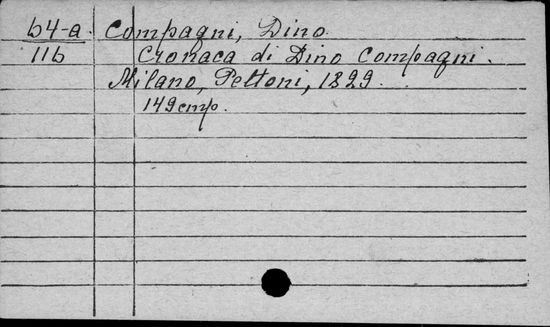 b4-a. Compagni, Dino.
11b Cronaca di Dino Compagni.
Milano, Pettoni, 1829.
149 cmp.